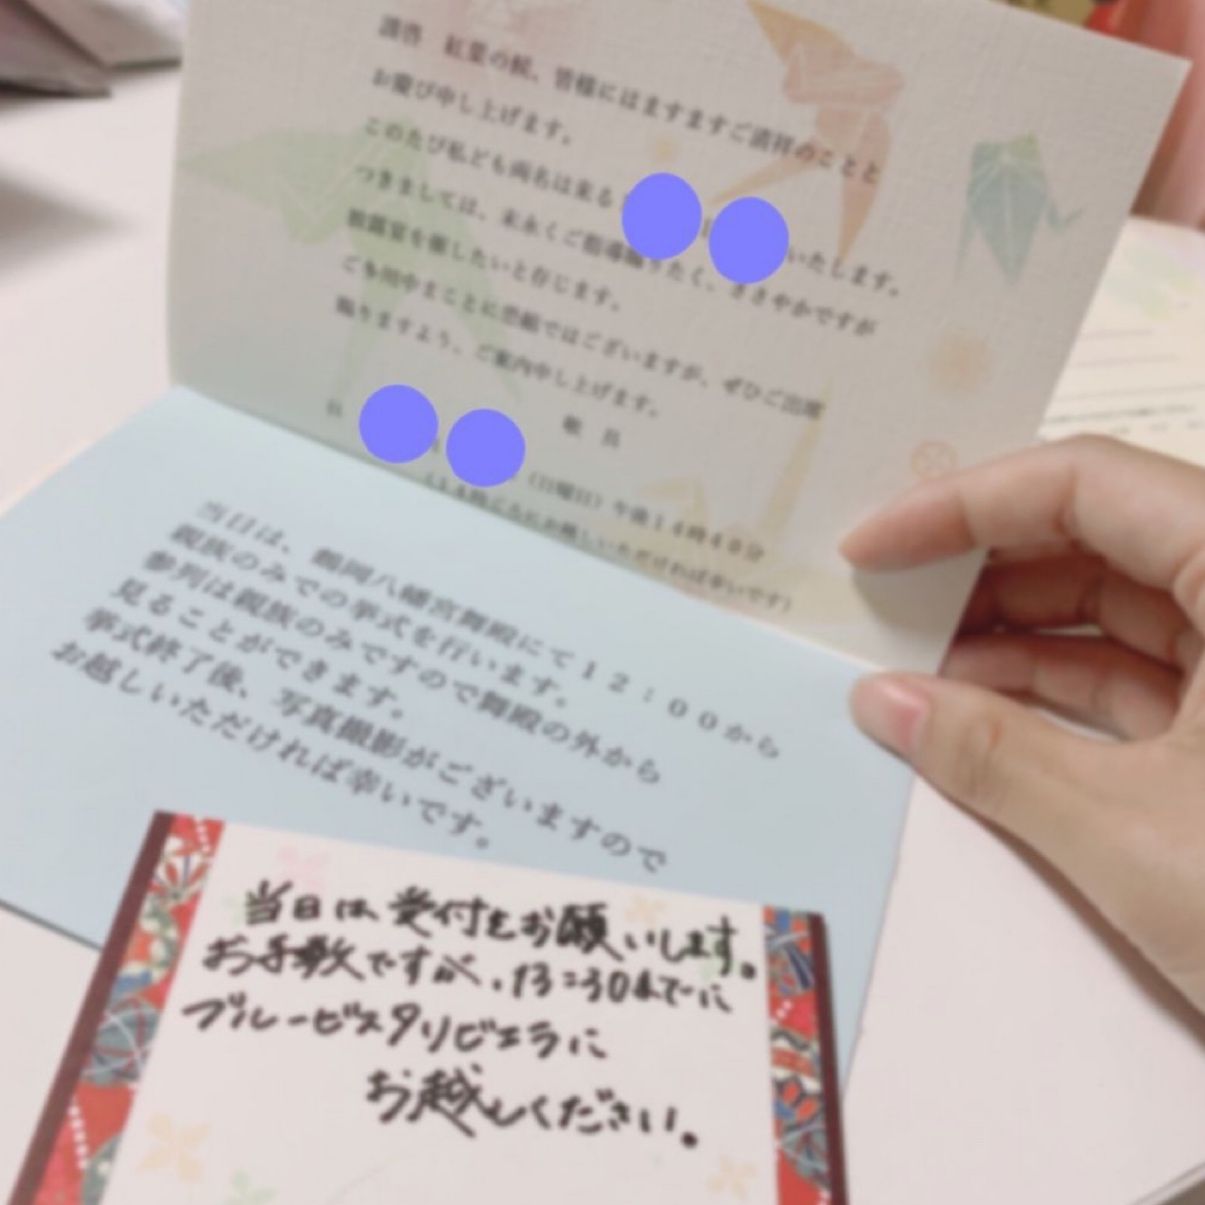 謹啓　紅葉の候、皆様にはますますご清祥のことと
お慶び申し上げます。
このたび私ども両名は来る いたします。
つきましては、末永くご指導賜りたく、ささやかですが
披露宴を催したいと存じます。
ご多用中まことに恐縮ではございますが、ぜひご出席
賜りますよう、ご案内申し上げます。
敬具
（日曜日）午後１４時４０分
にお越しいただければ幸いです）
当日は、鶴岡八幡宮舞殿にて１２：００から
親族のみでの挙式を行います。
参列は親族のみですので舞殿の外から
見ることができます。
挙式終了後、写真撮影がございますので
お越しいただければ幸いです。
当日は受付をお願いします。
お手数ですが、13:30までに
ブルービスタリビエラに
お越しください。